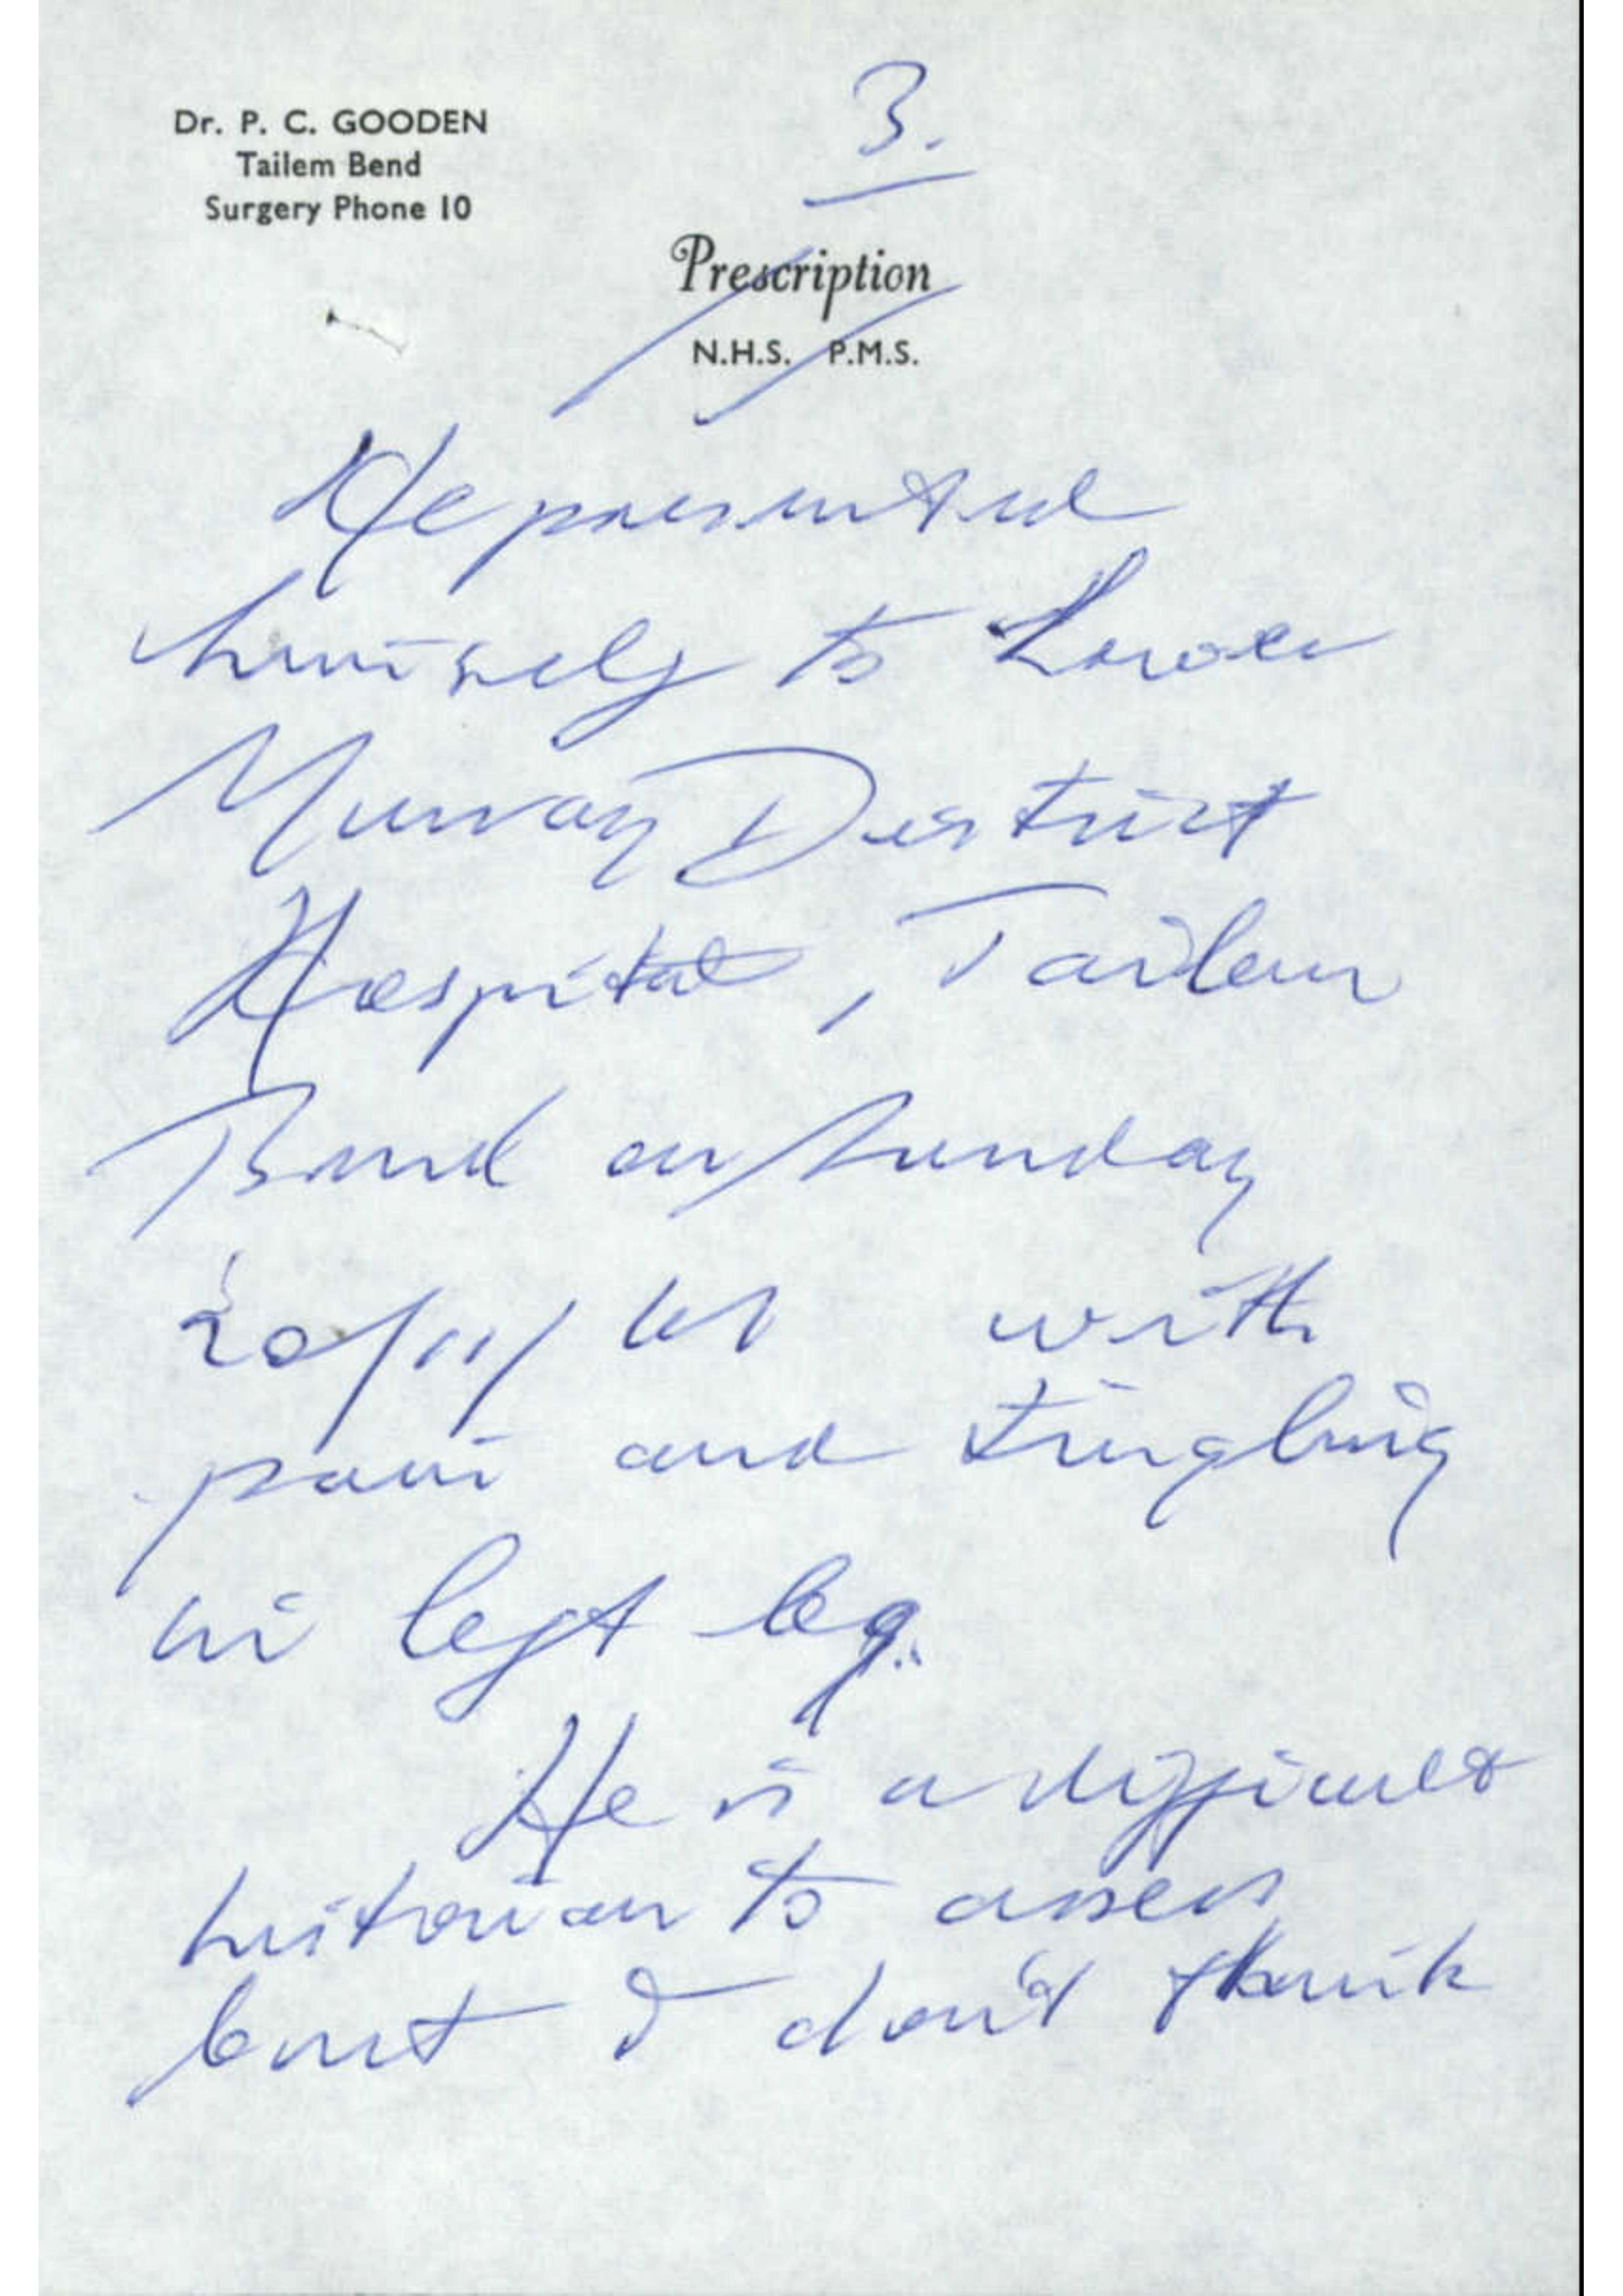 Dr. P. C. GOODEN
Tailem Bend
Surgery Phone 10
3.
Prescription
N.H.S. P.M.S.
He presented
himself to Lower
Murray District
Hospital, Tailem
Bend on Sunday
20/11/ with
pain and tingling
in left leg.
He is a difficult
historian to assess
but I don't think